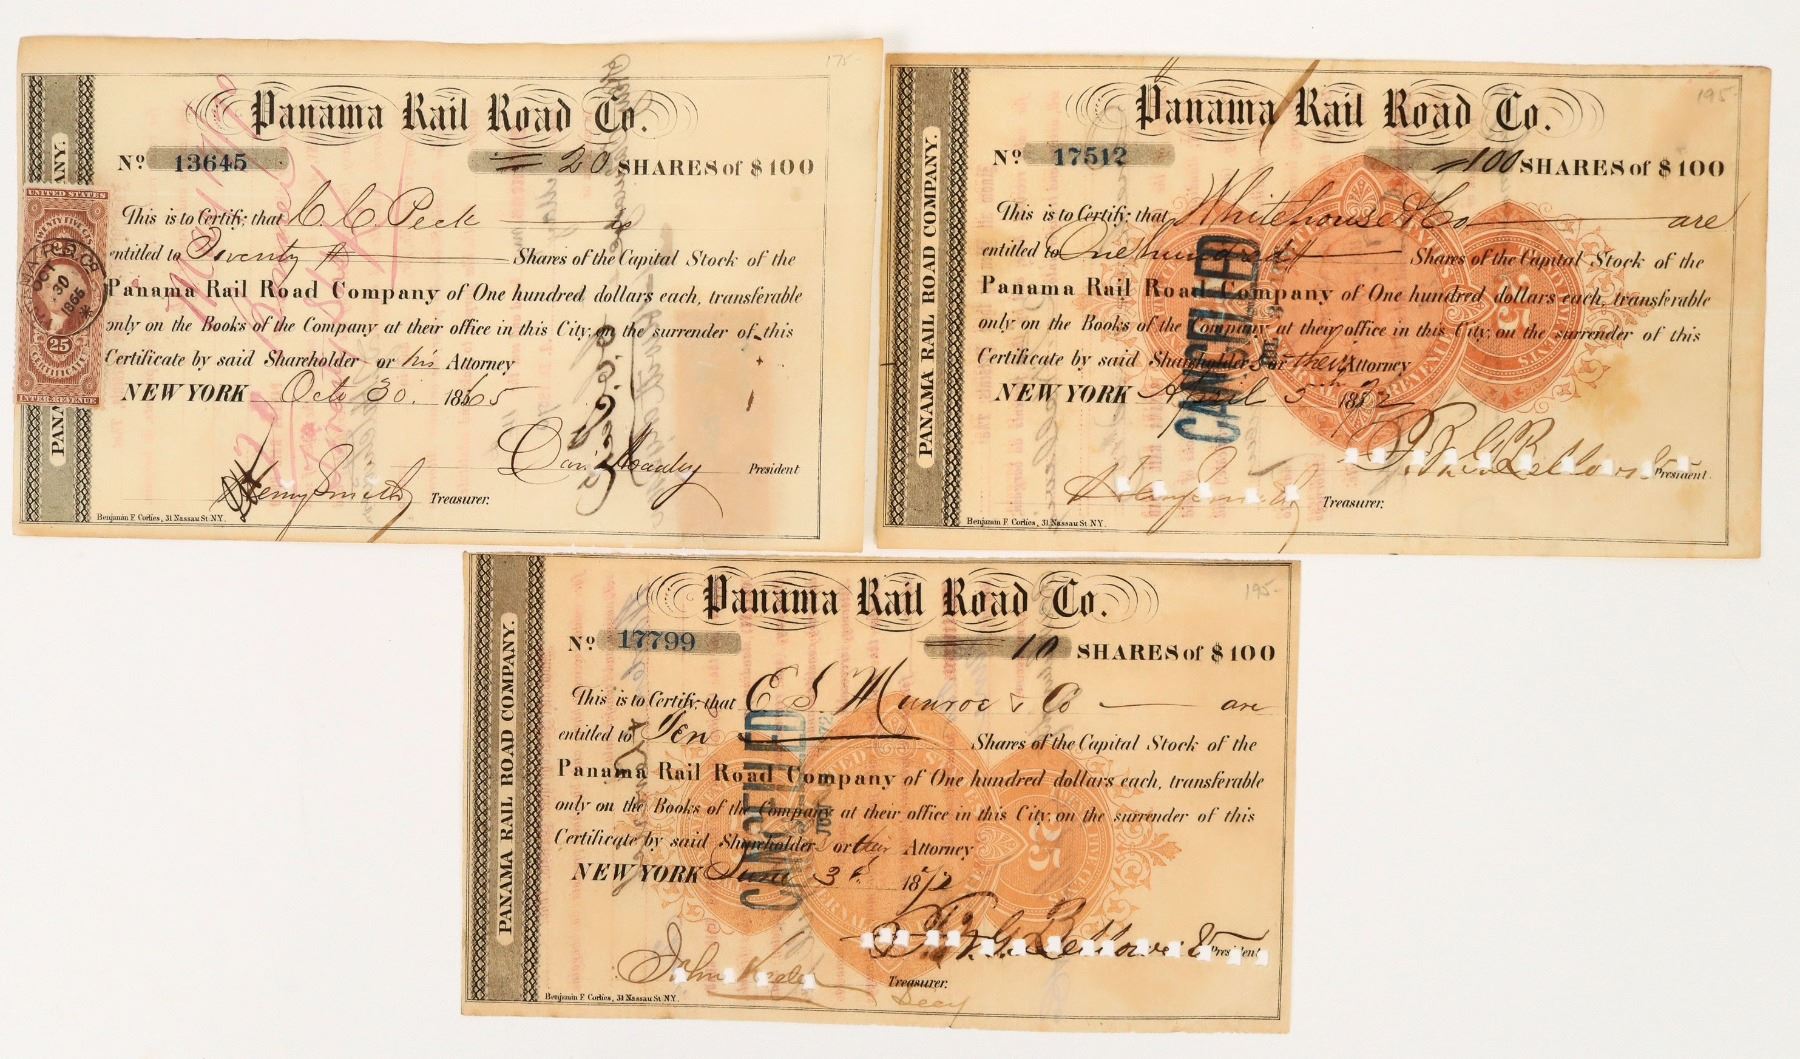 175-
Panama Rail Road Co.
No 13645 20 SHARES of $100
This is to Certify, that C. C. Peck is
entitled to Twenty Shares of the Capital Stock of the
Panama Rail Road Company of One hundred dollars each, transferable
only on the Books of the Company at their office in this City, on the surrender of this
Certificate by said Shareholder or his Attorney
NEW YORK Octo 30. 1865
President
Henry Smith Treasurer.
Benjamin F. Corlies, 31 Nassau St. NY.
PANAMA RAIL ROAD COMPANY.
UNITED STATES
TWENTY FIVE CTS
OCT 30 1865
25
CERTIFICATE
INTER. REVENUE
195-
Panama Rail Road Co.
No 17512 100 SHARES of $100
This is to Certify, that Whitehouse & Co are
entitled to One hundred Shares of the Capital Stock of the
Panama Rail Road Company of One hundred dollars each, transferable
only on the Books of the Company at their office in this City, on the surrender of this
Certificate by said Shareholders or their Attorney
NEW YORK April 5 1872
President
Henry Smith Treasurer.
Benjamin F. Corlies, 31 Nassau St. NY.
PANAMA RAIL ROAD COMPANY.
CANCELLED
25
195-
Panama Rail Road Co.
No 17799 10 SHARES of $100
This is to Certify, that E S Munroe & Co are
entitled to Ten Shares of the Capital Stock of the
Panama Rail Road Company of One hundred dollars each, transferable
only on the Books of the Company at their office in this City, on the surrender of this
Certificate by said Shareholder or their Attorney
NEW YORK June 3d 1872
President
Treasurer.
Secy
Benjamin F. Corlies, 31 Nassau St. NY.
PANAMA RAIL ROAD COMPANY.
CANCELLED
25